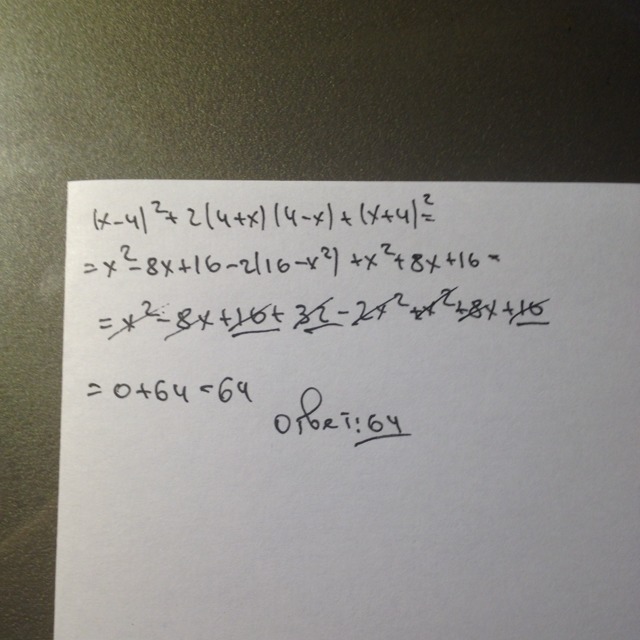 (x-4)²+2(4+x)(4-x)+(x+4)²=
=x²-8x+16-2(16-x²)+x²+8x+16=
=x²-8x+16+32-2x²+x²+8x+16
=0+64=64
Ответ: 64